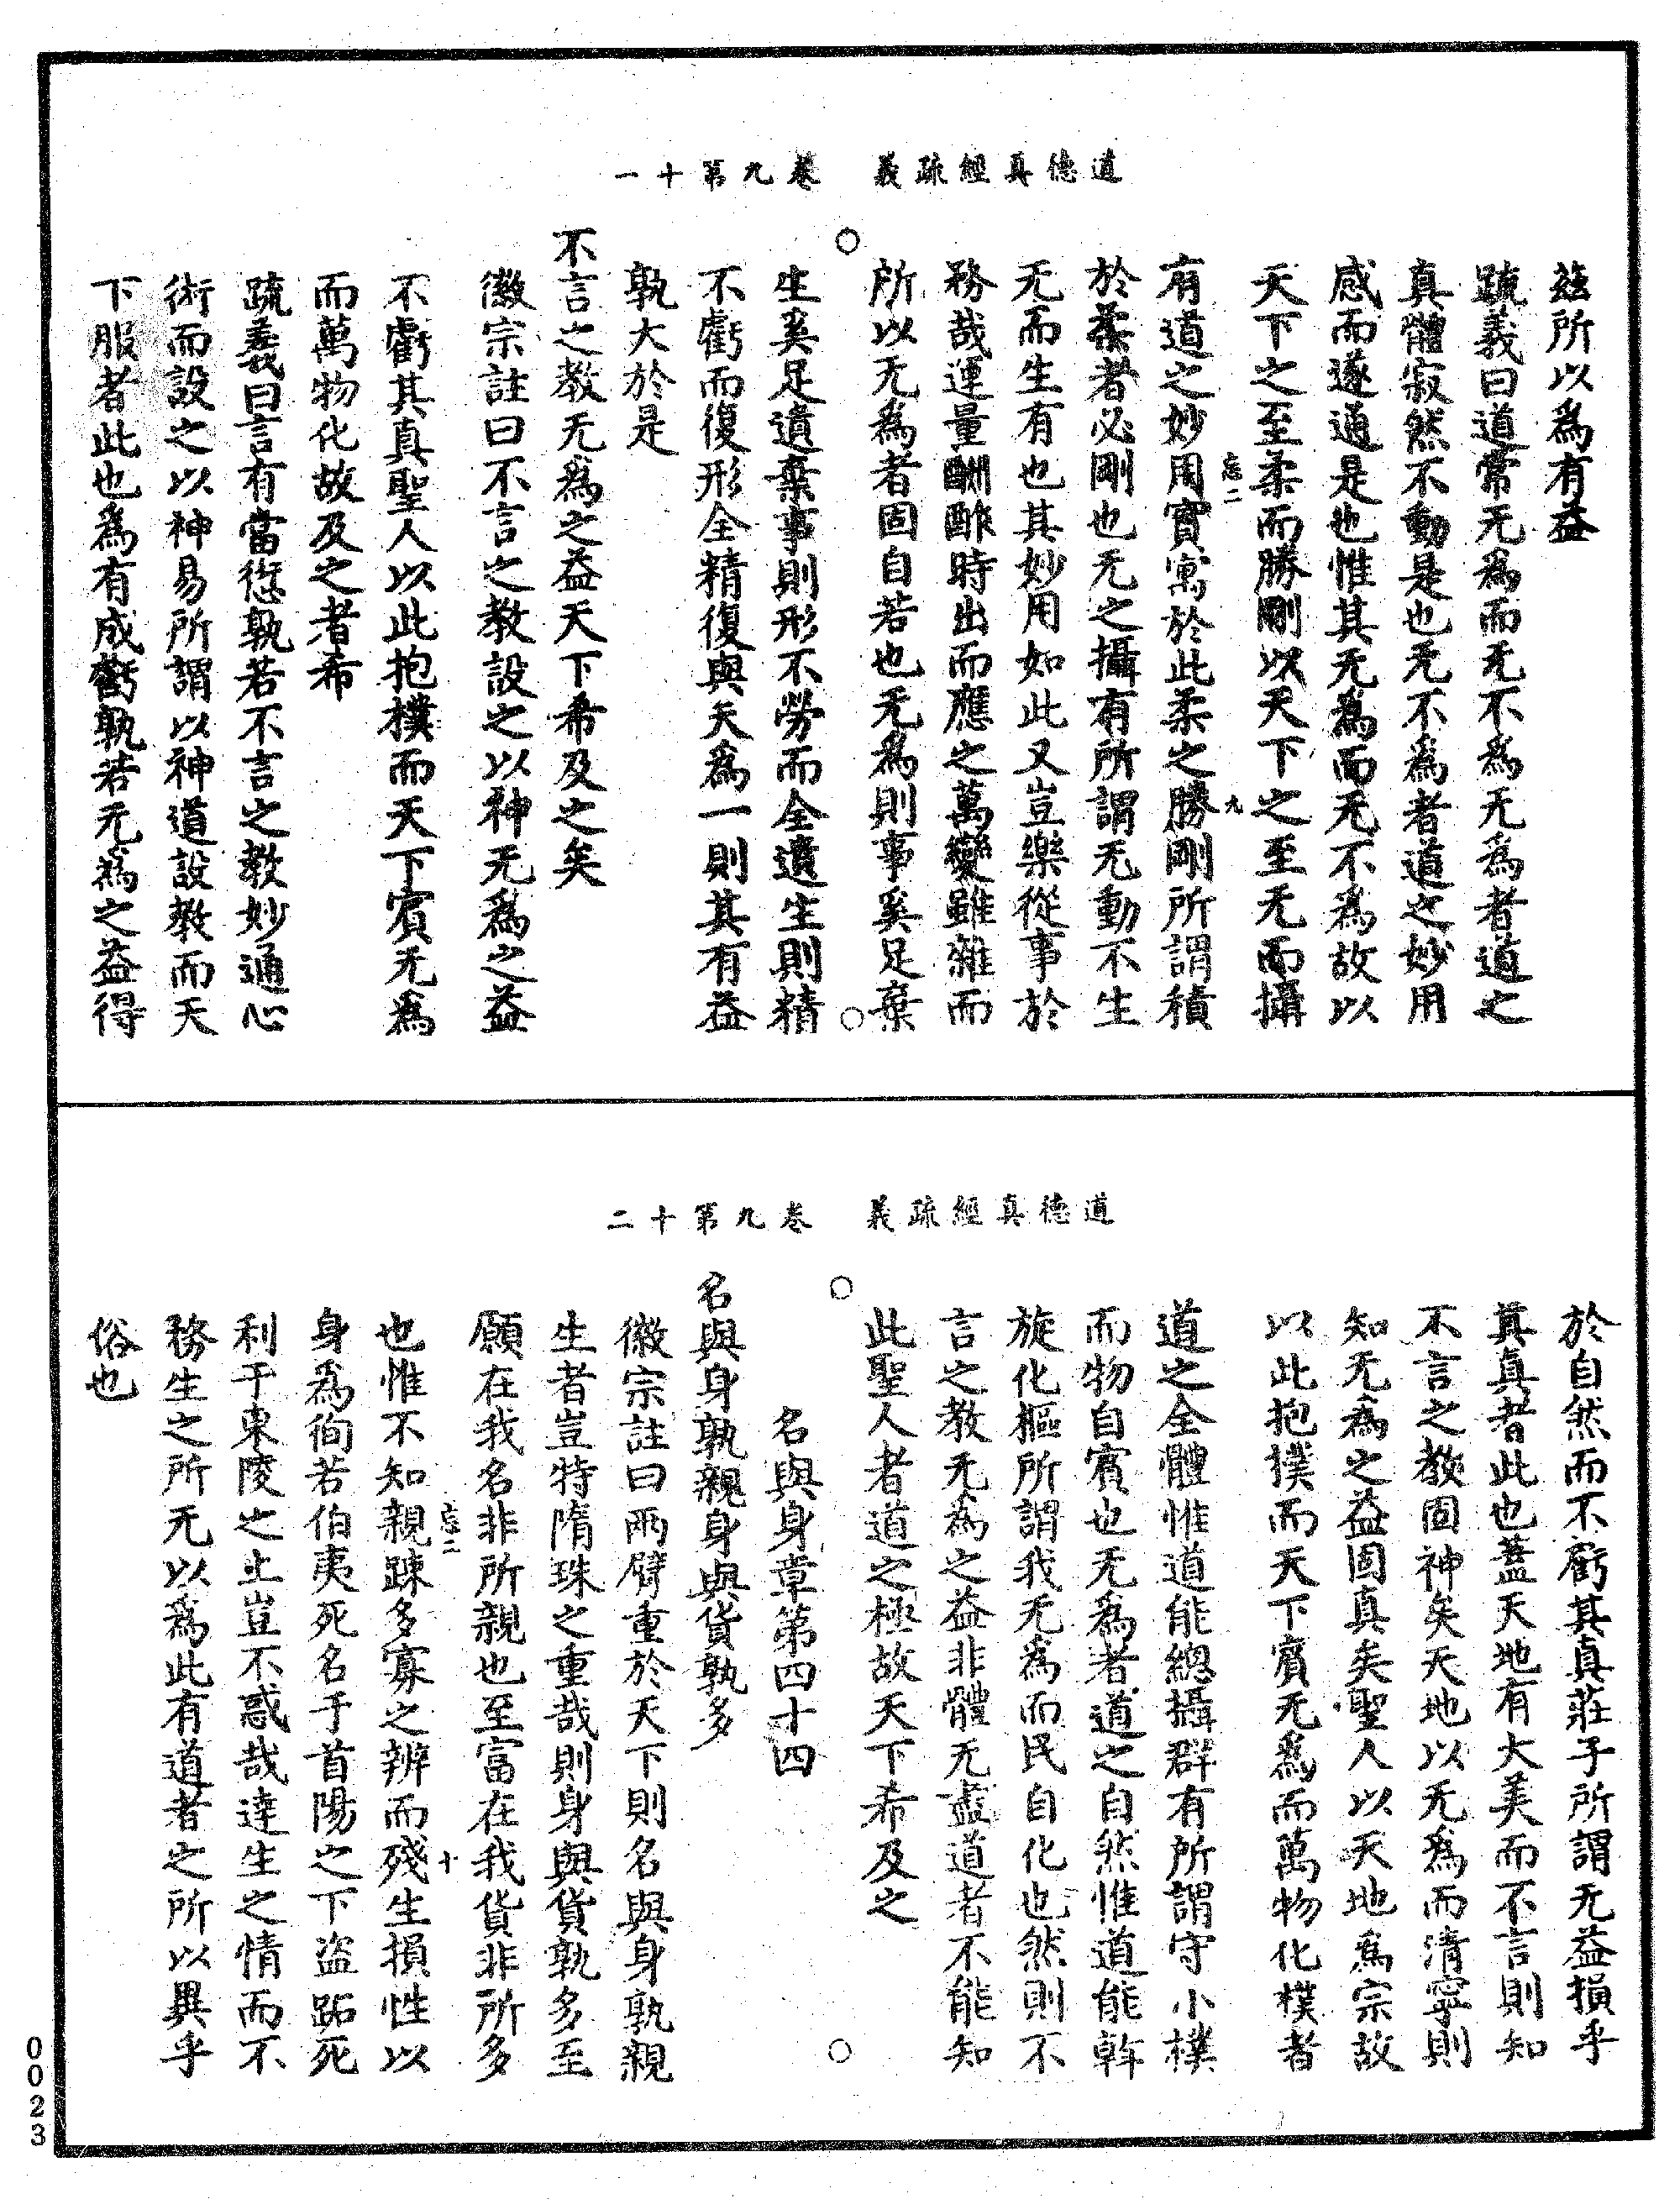 道德真經疏義　卷九第十一
茲所以爲有益
疏義曰道常无爲而无不爲无爲者道之
真體寂然不動是也无不爲者道之妙用
感而遂通是也惟其无爲而无不爲故以
天下之至柔而勝剛以天下之至无而攝
忘二　九
有道之妙用實寓於此柔之勝剛所謂積
於柔者必剛也无之攝有所謂无動不生
无而生有也其妙用如此又豈樂從事於
務哉運量酬酢時出而應之萬變雖雜而
所以无爲者固自若也无爲則事奚足棄
生奚足遺棄事則形不勞而全遺生則精
不虧而復形全精復與天爲一則其有益
孰大於是
不言之教无爲之益天下希及之矣
徽宗註曰不言之教設之以神无爲之益
不虧其真聖人以此抱樸而天下賓无爲
而萬物化故及之者希
疏義曰言有當愆孰若不言之教妙通心
術而設之以神易所謂以神道設教而天
下服者此也爲有成虧孰若无爲之益得
道德真經疏義　卷九第十二
於自然而不虧其真莊子所謂无益損乎
其真者此也蓋天地有大美而不言則知
不言之教固神矣天地以无爲而清寧則
知无爲之益固真矣聖人以天地爲宗故
以此抱樸而天下賓无爲而萬物化樸者
道之全體惟道能總攝群有所謂守小樸
而物自賓也无爲者道之自然惟道能斡
旋化樞所謂我无爲而民自化也然則不
言之教无爲之益非體无盡道者不能知
此聖人者道之極故天下希及之
名與身章第四十四
名與身孰親身與貨孰多
徽宗註曰兩臂重於天下則名與身孰親
生者豈特隋珠之重哉則身與貨孰多至
願在我名非所親也至富在我貨非所多
忘二　十
也惟不知親疎多寡之辨而殘生損性以
身爲徇若伯夷死名于首陽之下盜跖死
利于東陵之上豈不惑哉達生之情而不
務生之所无以爲此有道者之所以異乎
俗也
0023